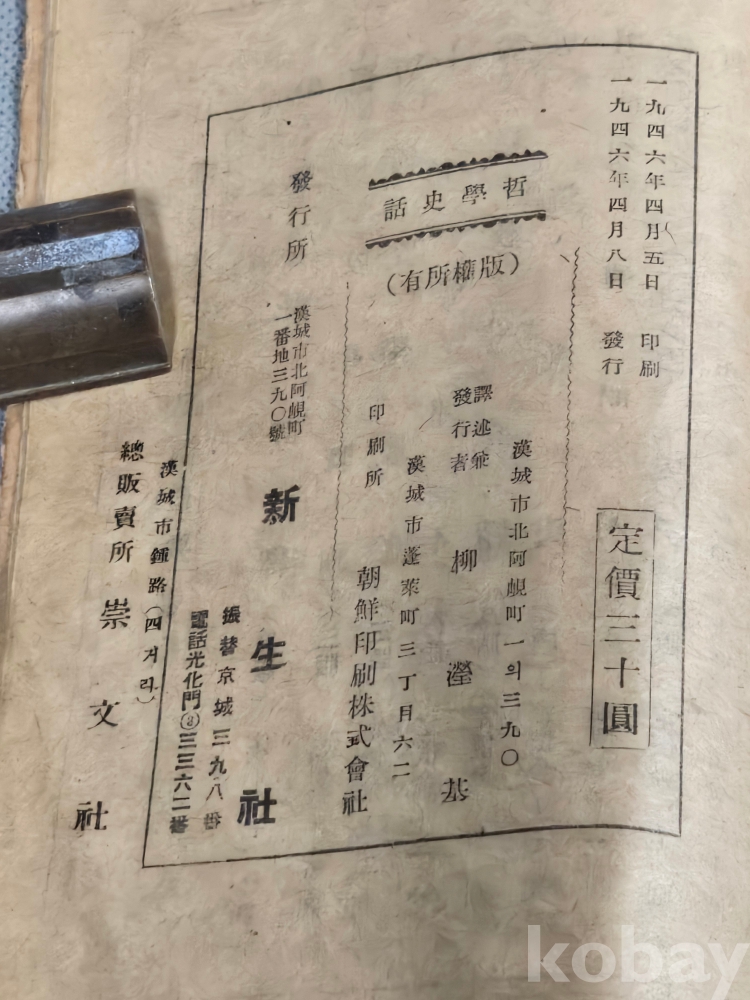 一九四六年四月五日 印刷
一九四六年四月八日 發行
定價三十圓
哲學史話
(版權所有)
漢城市北阿峴町一의三九〇
譯述兼
發行者 柳瀅基
漢城市蓬萊町三丁目六二
印刷所 朝鮮印刷株式會社
發行所
漢城市北阿峴町
一番地三九〇號
新生社
振替京城三九八番
電話光化門③三三六二番
漢城市鍾路(四거리)
總販賣所 崇文社
kobay